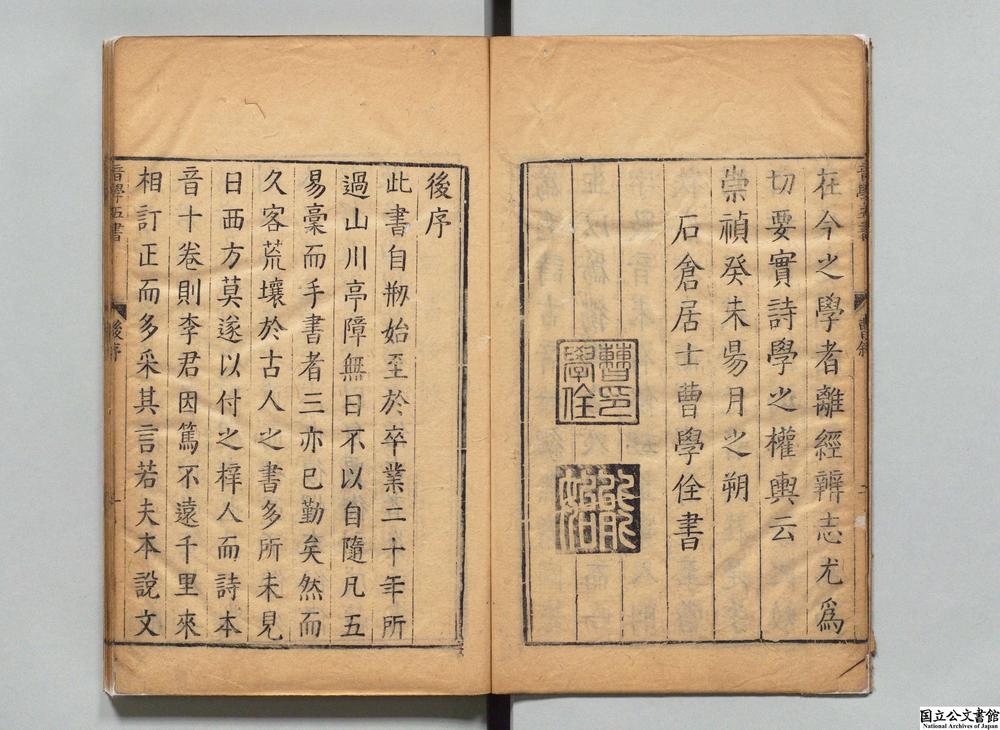 在今之學者離經辨志尤爲
切要實詩學之權輿云
崇禎癸未昜月之朔
石倉居士曹學佺書
曹印
學佺
音學五書
曹敘
後序
此書自刱始至於卒業二十年所
過山川亭障無日不以自隨凡五
易稾而手書者三亦已勤矣然而
久客荒壤於古人之書多所未見
日西方莫遂以付之梓人而詩本
音十卷則李君因篤不遠千里來
相訂正而多采其言若夫本說文
音學五書
後序
一
国立公文書館
National Archives of Japan